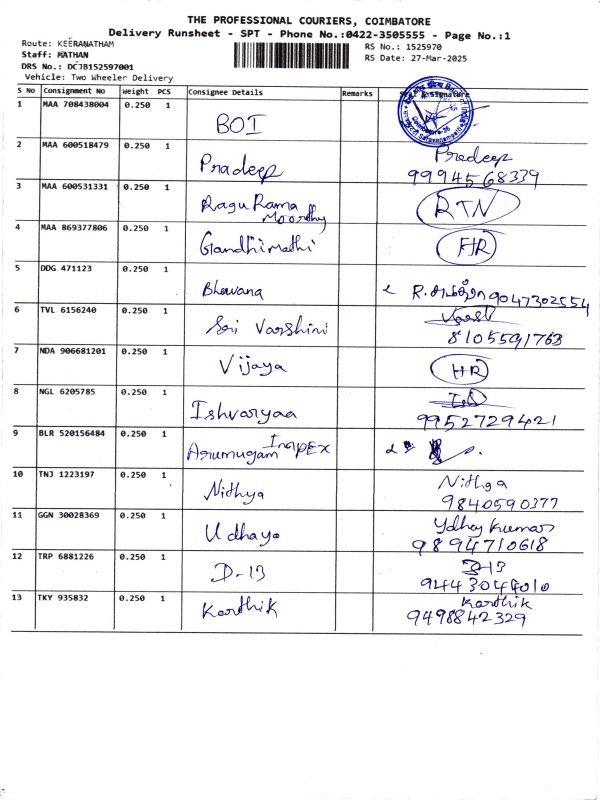 THE PROFESSIONAL COURIERS, COIMBATORE
Delivery Runsheet - SPT - Phone No.:0422-3505555 - Page No.:1
Route: KEERANATHAM
Staff: MATHAN
DRS No.: DCJB152597001
Vehicle: Two Wheeler Delivery
RS No.: 1525970
RS Date: 27-Mar-2025
S No Consignment No Weight PCS Consignee Details Remarks Signature
1 MAA 708438004 0.250 1 BOI
2 MAA 600518479 0.250 1 Pradeep Pradeep
9994568339
3 MAA 600531331 0.250 1 Ragu Rama RTN
Moorthy
4 MAA 869377806 0.250 1 Gandhimathi HR
5 DDG 471123 0.250 1 Bhuvana R. 9047302554
6 TVL 6156240 0.250 1 Sri Varshini
8105591763
7 NDA 906681201 0.250 1 Vijaya HR
8 NGL 6205785 0.250 1 Ishvaryaa
9952729421
9 BLR 520156484 0.250 1 Arumugam
10 TNJ 1223197 0.250 1 Nithya Nithya
9840590377
11 GGN 30028369 0.250 1 Udhaya Kumar
9894710618
12 TRP 6881226 0.250 1 D-13 D-13
9443044010
13 TKY 935832 0.250 1 Karthik Karthik
9498842329